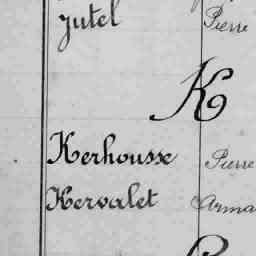 Jutel Pierre
K
Kerhousse Pierre
Kervalet Arma